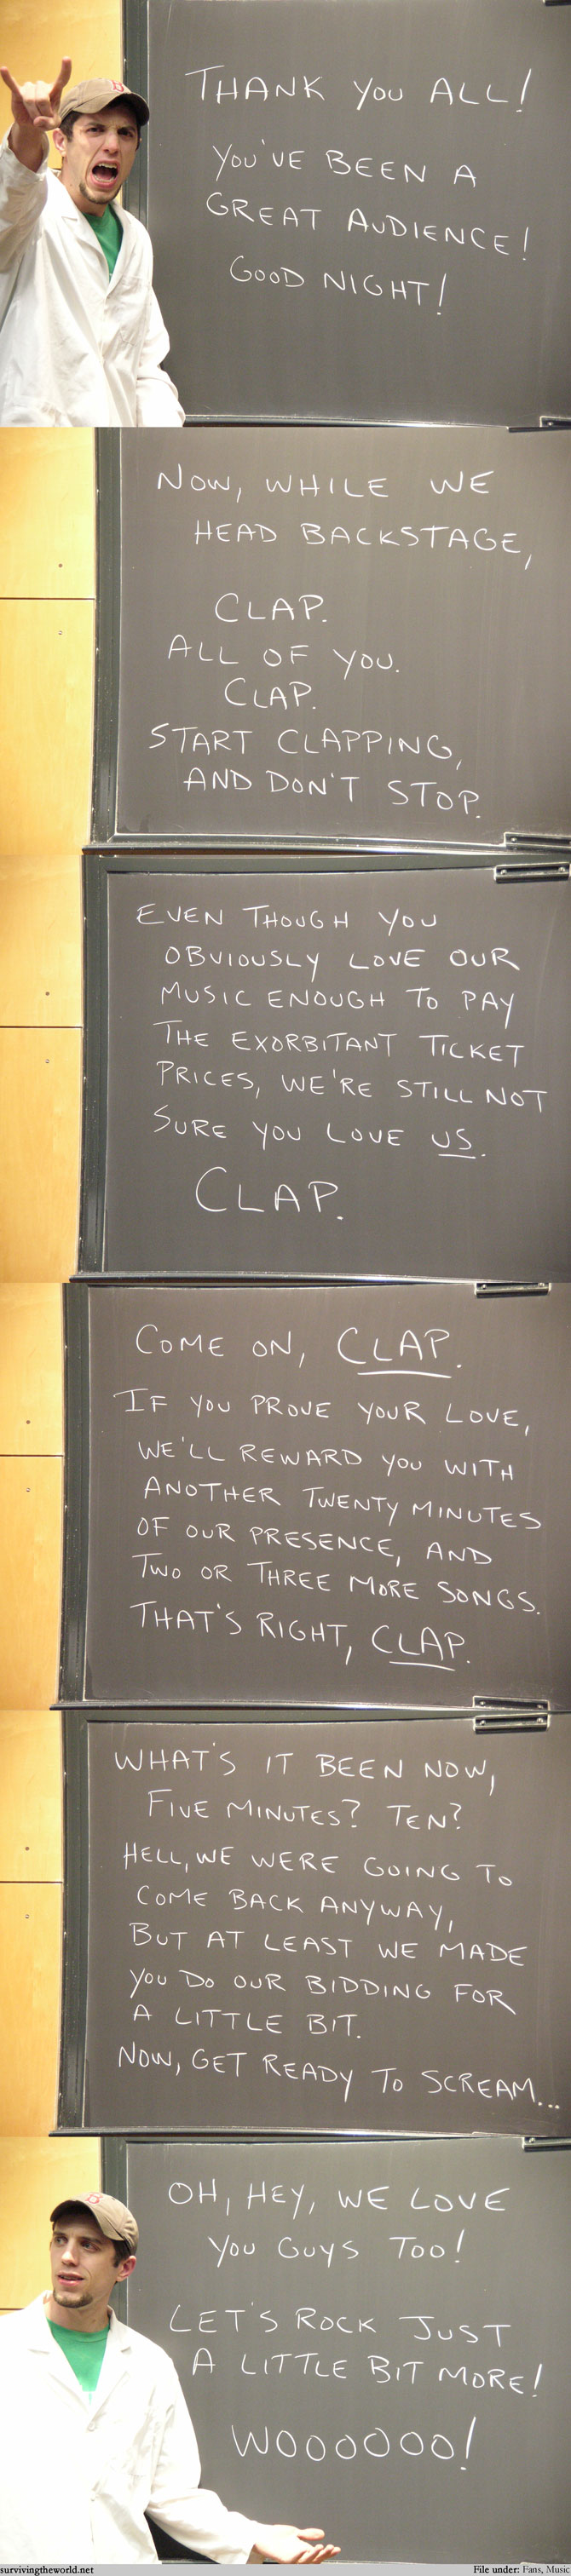 THANK YOU ALL!
YOU'VE BEEN A
GREAT AUDIENCE!
GOOD NIGHT!
NOW, WHILE WE
HEAD BACKSTAGE,
CLAP.
ALL OF YOU.
CLAP.
START CLAPPING,
AND DON'T STOP.
EVEN THOUGH YOU
OBVIOUSLY LOVE OUR
MUSIC ENOUGH TO PAY
THE EXORBITANT TICKET
PRICES, WE'RE STILL NOT
SURE YOU LOVE US.
CLAP.
COME ON, CLAP.
IF YOU PROVE YOUR LOVE,
WE'LL REWARD YOU WITH
ANOTHER TWENTY MINUTES
OF OUR PRESENCE, AND
TWO OR THREE MORE SONGS.
THAT'S RIGHT, CLAP.
WHAT'S IT BEEN NOW,
FIVE MINUTES? TEN?
HELL, WE WERE GOING TO
COME BACK ANYWAY,
BUT AT LEAST WE MADE
YOU DO OUR BIDDING FOR
A LITTLE BIT.
NOW, GET READY TO SCREAM...
OH, HEY, WE LOVE
YOU GUYS TOO!
LET'S ROCK JUST
A LITTLE BIT MORE!
WOOOOOO!
survivingtheworld.net
File under: Fans, Music